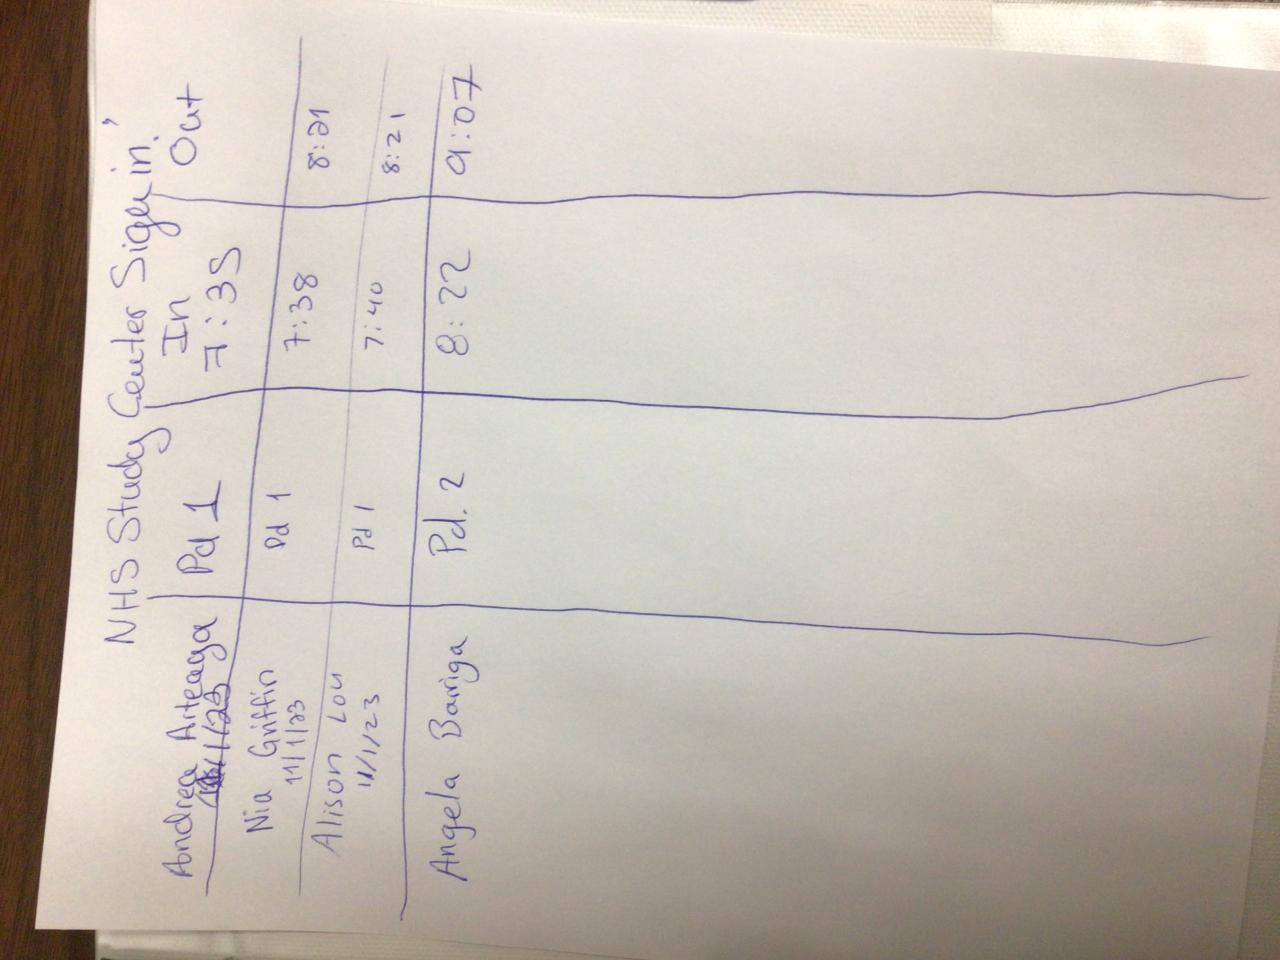 NHS Study Center Sign in!
In Out
Andrea Arteaga Pd 1 7:35
11/1/23
Nia Griffin Pd 1 7:38 8:21
11/1/23
Alison Lou Pd 1 7:40 8:21
11/1/23
Angela Barriga Pd. 2 8:22 9:07